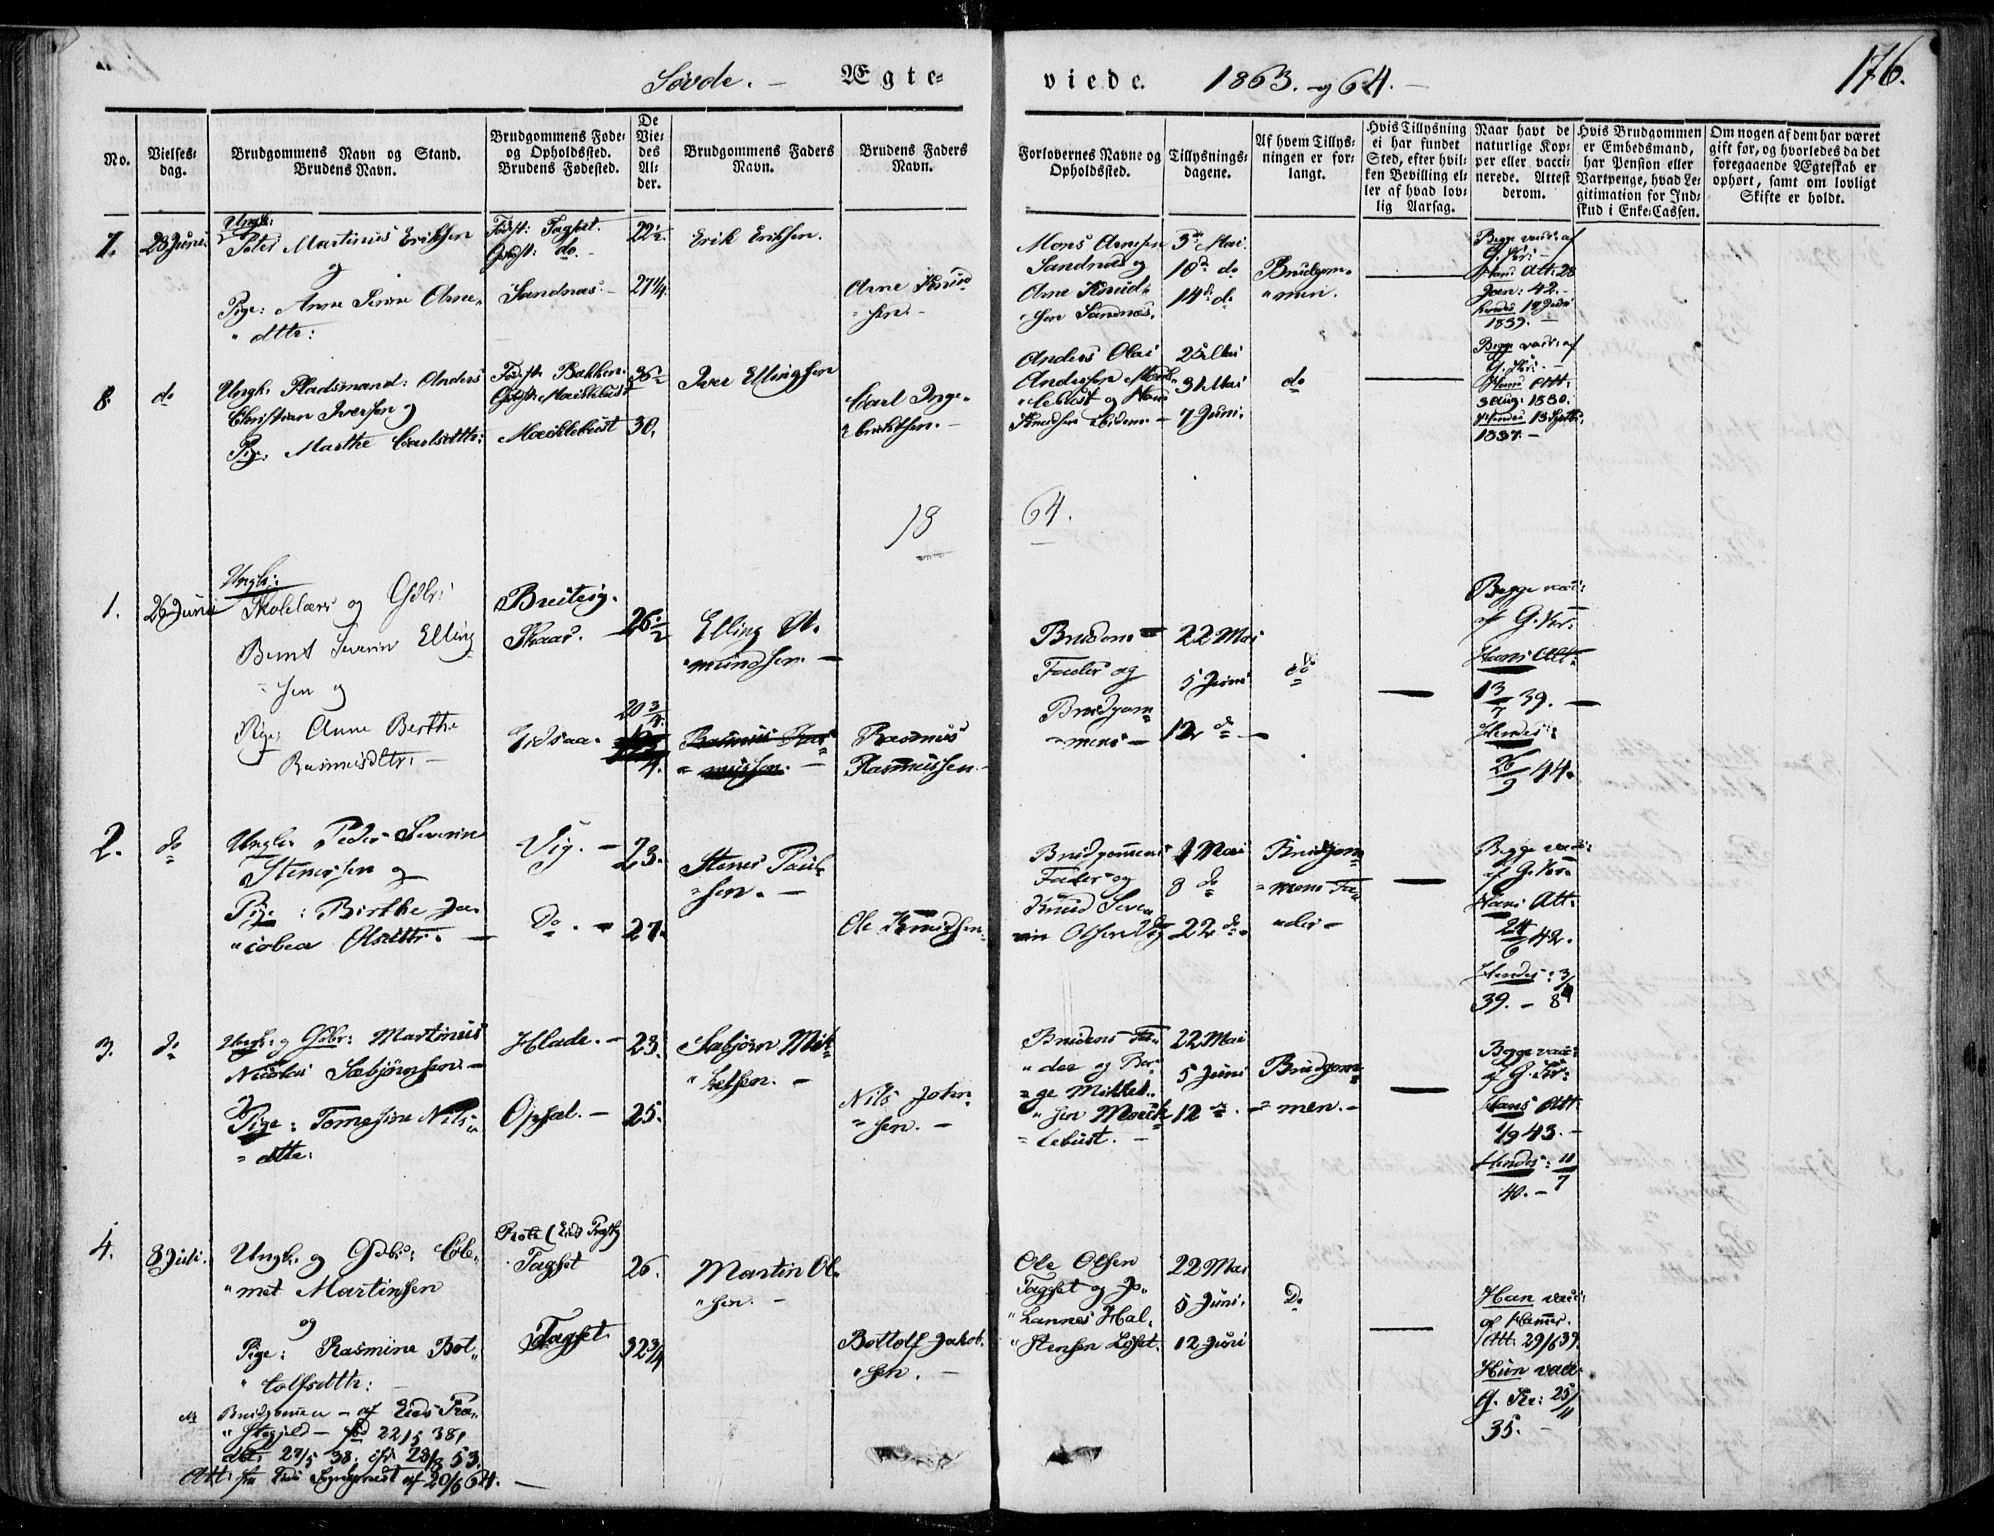 Søvde. - Ægte=
viede. 1863. og 64. -
176.
No.
Vielses=
dag.
Brudgommens Navn og Stand.
Brudens Navn.
Brudgommens Føde=
og Opholdssted.
Brudens Fødested.
De
Vie=
des
Al=
der.
Brudgommens Faders
Navn.
Brudens Faders
Navn.
Forlovernes Navne og
Opholdssted.
Tillysnings=
dagene.
Af hvem Tillys=
ningen er for=
langt.
Hvis Tillysning
ei har fundet
Sted, efter hvil=
ken Bevilling el=
ler af hvad lov=
lig Aarsag.
Naar havt de
naturlige Kop=
per eller vacci=
nerede. Attest
derom.
Hvis Brudgommen
er Embedsmand,
har Pension eller
Vartpenge, hvad Le=
gitimation for Ind=
skud i Enke=Cassen.
Om nogen af dem har været
gift før, og hvorledes da det
foregaaende Ægteskab er
ophørt, samt om lovligt
Skifte er holdt.
7. 28 Juni
Ungk:
Peter Martinus Eriksen
og
Pige: Anne Serine Arne"
" dttr:
Født: Tagset.
Opholdst: do. -
Sandnæs -
22½
27¼
Erik Eriksen.
Arne Knud
" sen. -
Mons Arnesen
Sandnæs og
Arne Knud"
" sen Sandnæs.
3die Mai
10de do
14de do
Brudgom"
" men.
Begge vacc: af
G. Kr: -
Hans Att: 28
Jan: 42. -
Hendes 12 Juni
1839. -
8 do
Ungk: Pladsmand: Anders
Christian Iversen og
Pige: Marthe Carlsdttr:
Født: Bakken
Opholdst: Møcklebust
Møcklebust
36
30.
Iver Ellingsen
Carl Inge"
" brichtsen. -
Anders Olai
Andersen Møck"
" lebust og Hans
Knudsen ibidem -
25 Mai
31 Mai
7 Juni.
do
Begge vacc: af
G. Kr: -
Hans Att:
3 Aug: 1830.
Hendes 13 Septb:
1837. -
18 64.
1. 26 Juni
Ungk:
Skolelærer og Gdbr:
Bernt Severin Elling
= sen og
Pige: Anne Berthe
Rasmusdttr: -
Breiteig.
Skaar. -
Eidsaa.
26½
20¾
Elling A.
" mundsen. -
Rasmus Ras
= mussen. -
Rasmus
Rasmussen. -
Brudens
Fader og
Brudgom=
= mens -
22 Mai
5 Juni
12 do -
do
Begge vac:
af G. Kr:
Hans Att:
13/7 39. -
Hendes:
26/9 44.
2. do
Ungk: Peder Severin
Stenersen og
Pige: Birthe Ja=
" cobea Olsdttr: -
Vig. -
Do. -
23.
27.
Stener Paul
= sen. -
Ole Knudsen
Brudgommens
Fader og
Knud Seve=
rin Olsen Vig
1 Mai
8 do
22 do
Brudgom=
= mens Fa=
= der -
Begge vac:
af G. Kr:
Hans Att:
24/6 42.
Hendes: 3/8
39. -
3. do
Ungk: og Gdbr: Martinus
Nicolai Sæbjørnsen. -
Pige: Tomesine Nils=
= dttr:
Hlade. -
Opsal. -
23.
25.
Sæbjørn Mik=
" kelsen. -
Nils John
= sen. -
Brudens Fa=
" der og Bør=
= ge Mikkel=
" sen Mørck=
= lebust. -
22 Mai
5 Juni
12 do -
Brudgom=
= men. -
Begge vac:
af G. Kr:
Hans Att:
1/9 43. -
Hendes: 11/7
40. -
4. 8 Juli.
Ungk. og Gdbr: Col=
" met Martinsen
og
Pige: Rasmine Bot=
" tolfsdttr:
(Eids Prgj)
Tagset
Tagset
26.
Martin Ol=
" sen. -
Bottolf Jakob
" sen. -
Ole Olsen
Tagset og Jo=
" hannes Hal=
" stensen Løset.
22 Mai
5 Juni.
12 Juni
Do
Han vacc:
af Hammer.
Att: 29/6 39.
Hun vacc.
G. Kr: 25/11
35. -
Brudgommen - af Eids Præ=
" stegjeld - fød 22/5 38,
27/5 38. 28/8 53.
Att: fra Eids Sognepræst af 20/6 64. -